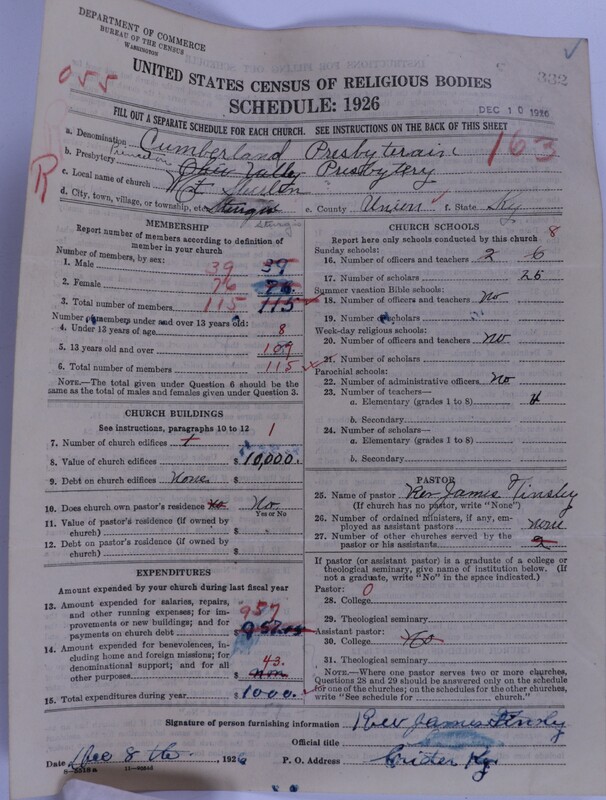 DEPARTMENT OF COMMERCE
BUREAU OF THE CENSUS
WASHINGTON
332
055
UNITED STATES CENSUS OF RELIGIOUS BODIES
SCHEDULE: 1926
DEC 10 1926
FILL OUT A SEPARATE SCHEDULE FOR EACH CHURCH. SEE INSTRUCTIONS ON THE BACK OF THIS SHEET
163
R
a. Denomination Cumberland Presbyterain
b. Presbytery Princeton Ohio Valley Presbytery
c. Local name of church Mt
d. City, town, village, or township, etc. Sturgis Sturgis e. County Union f. State Ky
MEMBERSHIP
Report number of members according to definition of member in your church
Number of members, by sex:
1. Male 39 39
2. Female 76 76
3. Total number of members 115 115
Number of members under and over 13 years old:
4. Under 13 years of age 8
5. 13 years old and over 109
6. Total number of members 115
NOTE.—The total given under Question 6 should be the same as the total of males and females given under Question 3.
CHURCH BUILDINGS
See instructions, paragraphs 10 to 12
7. Number of church edifices 1 1
8. Value of church edifices $ 10,000.
9. Debt on church edifices none $
10. Does church own pastor's residence No No
Yes or No
11. Value of pastor's residence (if owned by church) $
12. Debt on pastor's residence (if owned by church) $
EXPENDITURES
Amount expended by your church during last fiscal year
13. Amount expended for salaries, repairs, and other running expenses; for improvements or new buildings; and for payments on church debt 957 $
14. Amount expended for benevolences, including home and foreign missions; for denominational support; and for all other purposes 43. $
15. Total expenditures during year $ 1000.
CHURCH SCHOOLS
Report here only schools conducted by this church 8
Sunday schools:
16. Number of officers and teachers 2 6
17. Number of scholars 25
Summer vacation Bible schools:
18. Number of officers and teachers no
19. Number of scholars
Week-day religious schools:
20. Number of officers and teachers no
21. Number of scholars
Parochial schools:
22. Number of administrative officers no
23. Number of teachers—
a. Elementary (grades 1 to 8)
b. Secondary
24. Number of scholars—
a. Elementary (grades 1 to 8)
b. Secondary
PASTOR
25. Name of pastor Rev James Tinsley
(If church has no pastor, write "None")
26. Number of ordained ministers, if any, employed as assistant pastors none
27. Number of other churches served by the pastor or his assistants 2
If pastor (or assistant pastor) is a graduate of a college or theological seminary, give name of institution below. (If not a graduate, write "No" in the space indicated.)
Pastor: 0
28. College
29. Theological seminary
Assistant pastor:
30. College No
31. Theological seminary
NOTE.—Where one pastor serves two or more churches, Questions 28 and 29 should be answered only on the schedule for one of the churches; on the schedules for the other churches, write "See schedule for church."
Signature of person furnishing information Rev James Tinsly
Official title
Date Dec 8 th, 1926 P. O. Address Crider Ky.